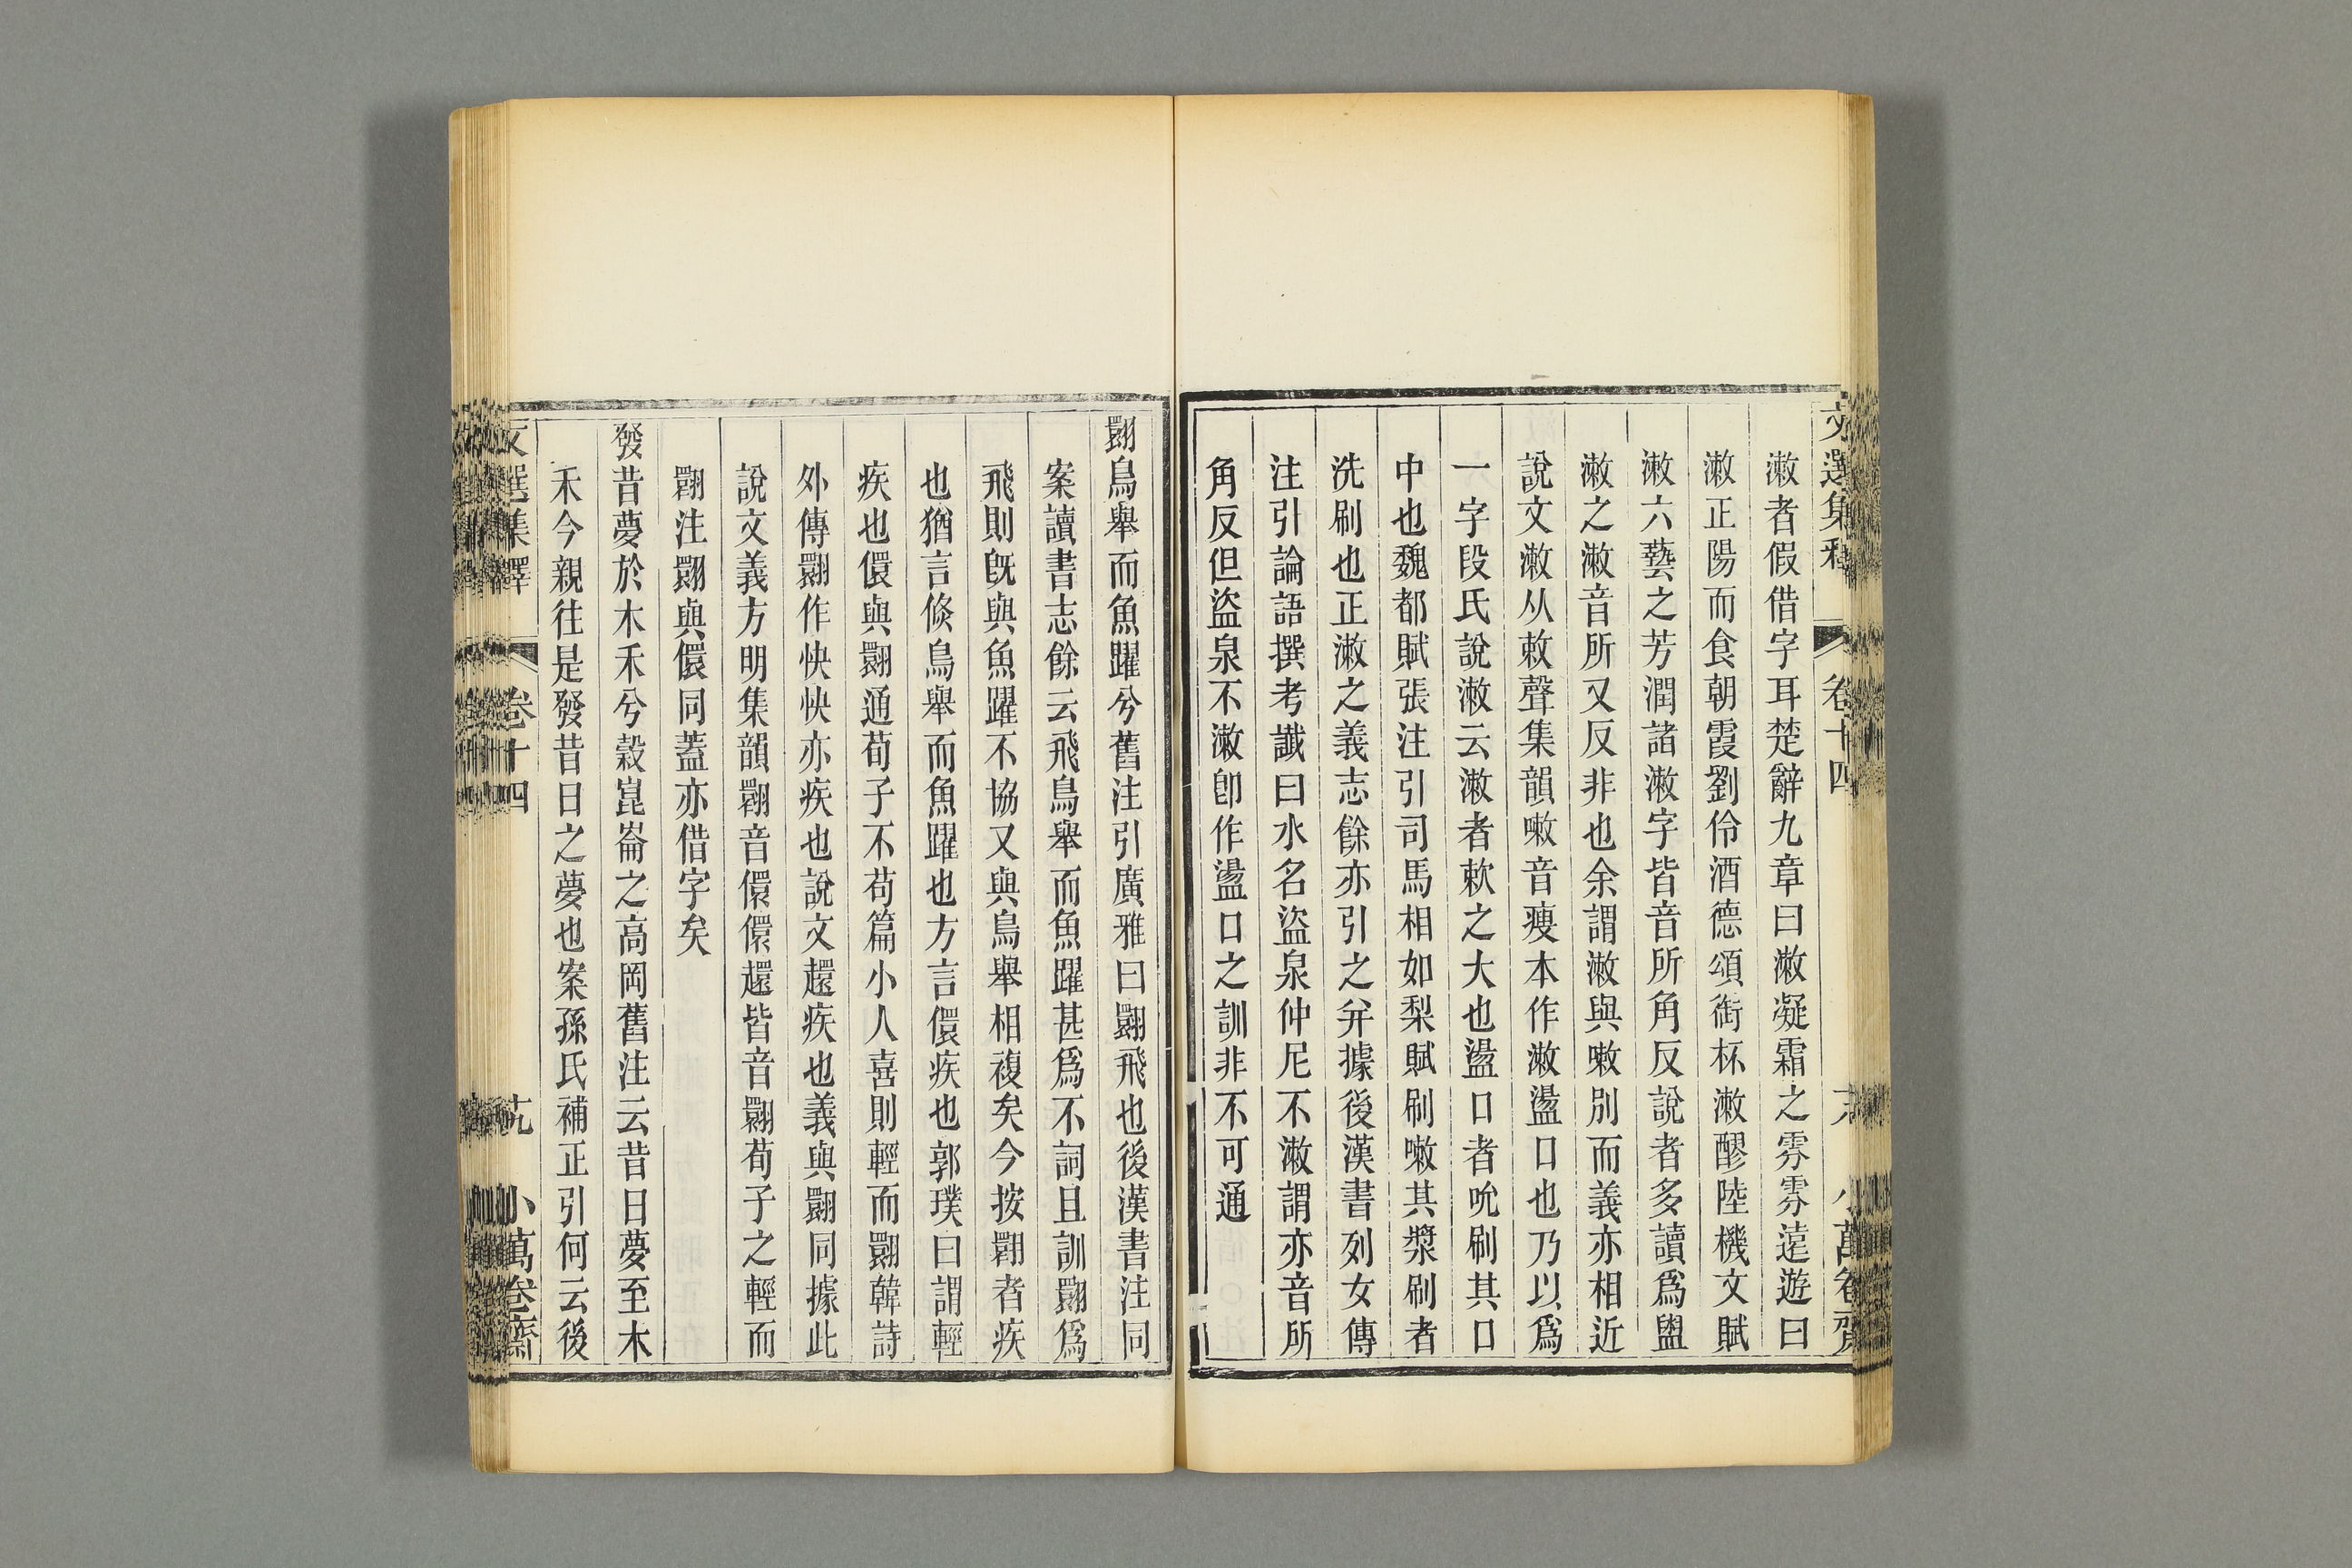 文選集釋 卷十四 六 小萬卷齋
漱者假借字耳楚辭九章曰漱凝霜之雰雰遠遊曰
漱正陽而食朝霞劉伶酒德頌銜杯漱醪陸機文賦
漱六藝之芳潤諸漱字皆音所角反說者多讀爲盥
漱之漱音所又反非也余謂漱與嗽別而義亦相近
說文漱从敕聲集韻嗽音瘦本作漱盪口也乃以爲
一字段氏說漱云漱者欶之大也盪口者吮刷其口
中也魏都賦張注引司馬相如梨賦刷嗽其漿刷者
洗刷也正漱之義志餘亦引之弁據後漢書列女傳
注引論語撰考讖曰水名盜泉仲尼不漱謂亦音所
角反但盜泉不漱卽作盪口之訓非不可通
翾鳥舉而魚躍兮舊注引廣雅曰翾飛也後漢書注同
案讀書志餘云飛鳥舉而魚躍甚爲不詞且訓翾爲
飛則旣與魚躍不協又與鳥舉相複矣今按翾者疾
也猶言倏鳥舉而魚躍也方言儇疾也郭璞曰謂輕
疾也儇與翾通荀子不苟篇小人喜則輕而翾韓詩
外傳翾作快快亦疾也說文趯疾也義與翾同據此
說文義方明集韻翾音儇儇趯皆音翾荀子之輕而
翾注翾與儇同蓋亦借字矣
發昔夢於木禾兮穀崑崙之高岡舊注云昔日夢至木
禾今親往是發昔日之夢也案孫氏補正引何云後
文選集釋 卷十四 小萬卷齋